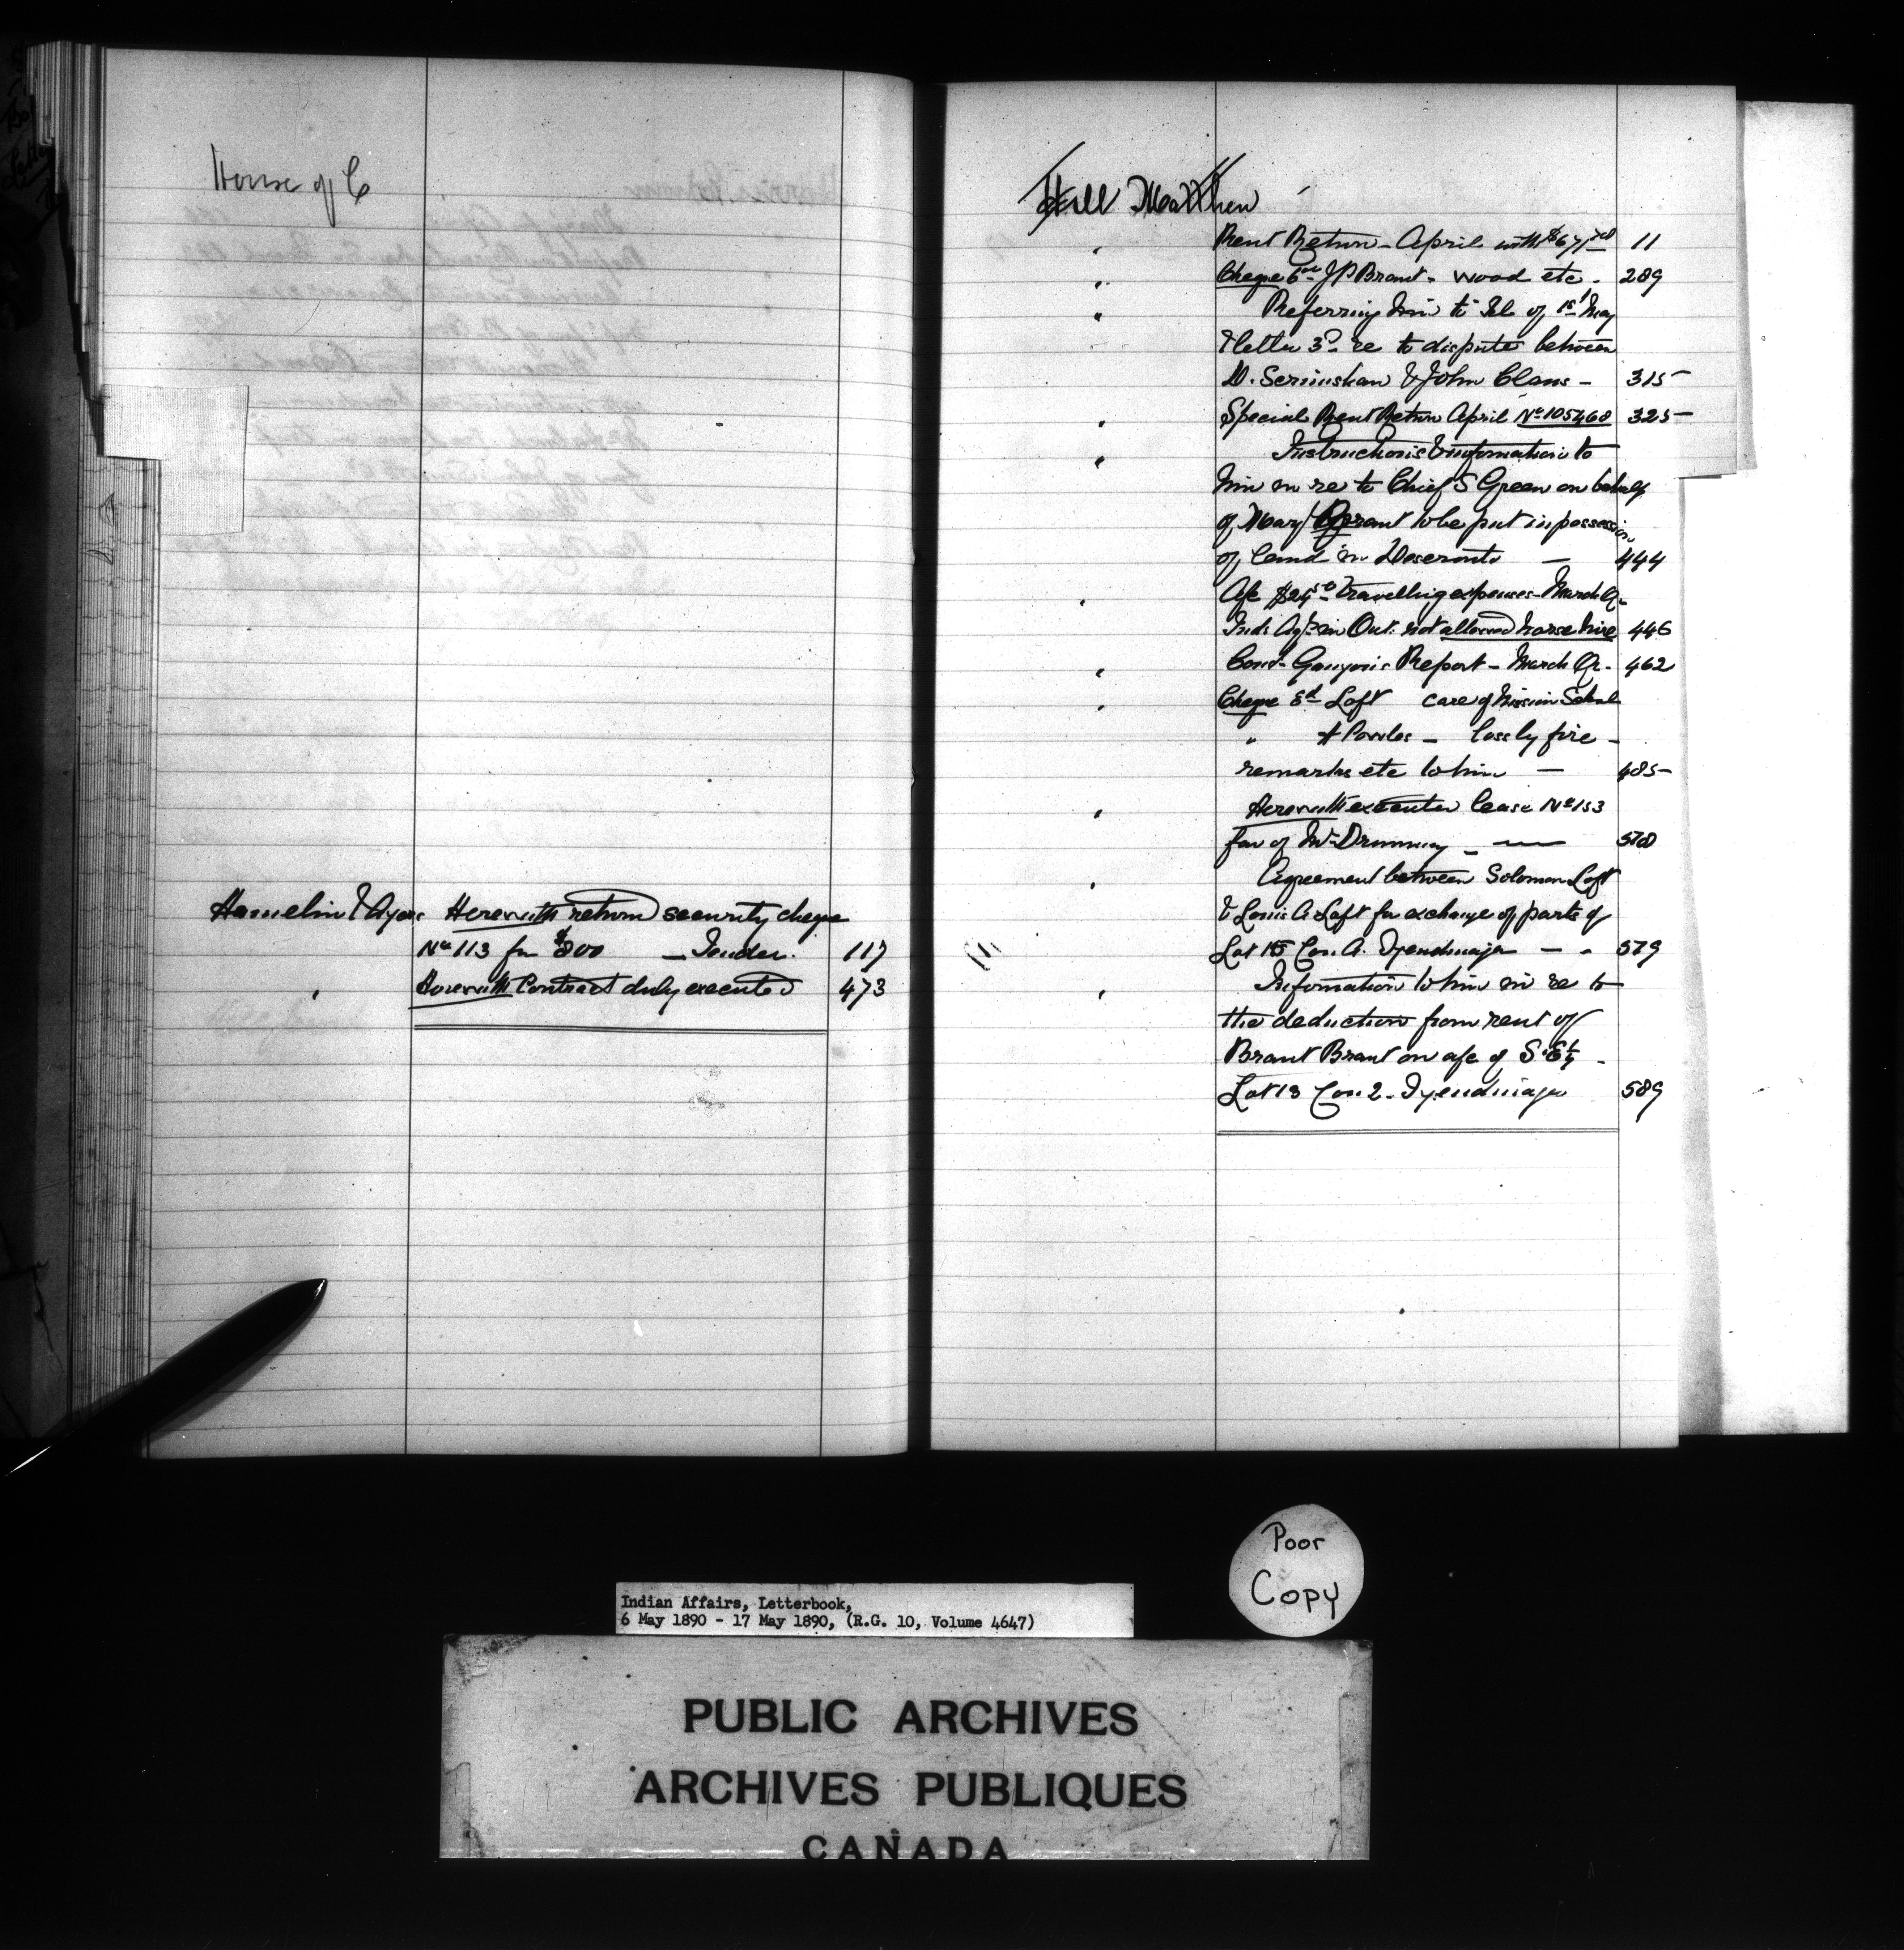 House of C
Hamelin & Ayers Herewith return security cheque
No 113 for $200 — Tender. 117
" Herewith Contract duly executed 473
Hill Matthew
" Rent Return - April with $671 11
" Cheque J P Brant - wood etc. 289
" Referring him to tel of 1st May
& letter 3rd re to dispute between
D. & John Claus - 315
" Special Rent Return April No 105460 325
" Instructions & information to
him in re to Chief S Green on behalf
of Mary Brant to be put in possession
of land in Deseronto — 444
" A/c $24 travelling expenses - March Q.
Ind. Agts in Ont. not allowed horse hire 446
" Const. Report - March Qr. 462
" Cheque Loft care of Mission School
" — loss by fire -
remarks etc to him — 485
" Herewith executed lease No 153
fav of — 570
" Agreement between Solomon Loft
& Louis A Loft for exchange of parts of
Lot 15 Con. A. Tyendinaga — 579
" Information to him in re to
the deduction from rent of
Brant Brant on a/c of S E ½
Lot 13 Con 2 - Tyendinaga 589
Poor
Copy
Indian Affairs, Letterbook,
6 May 1890 - 17 May 1890, (R.G. 10, Volume 4647)
PUBLIC ARCHIVES
ARCHIVES PUBLIQUES
CANADA